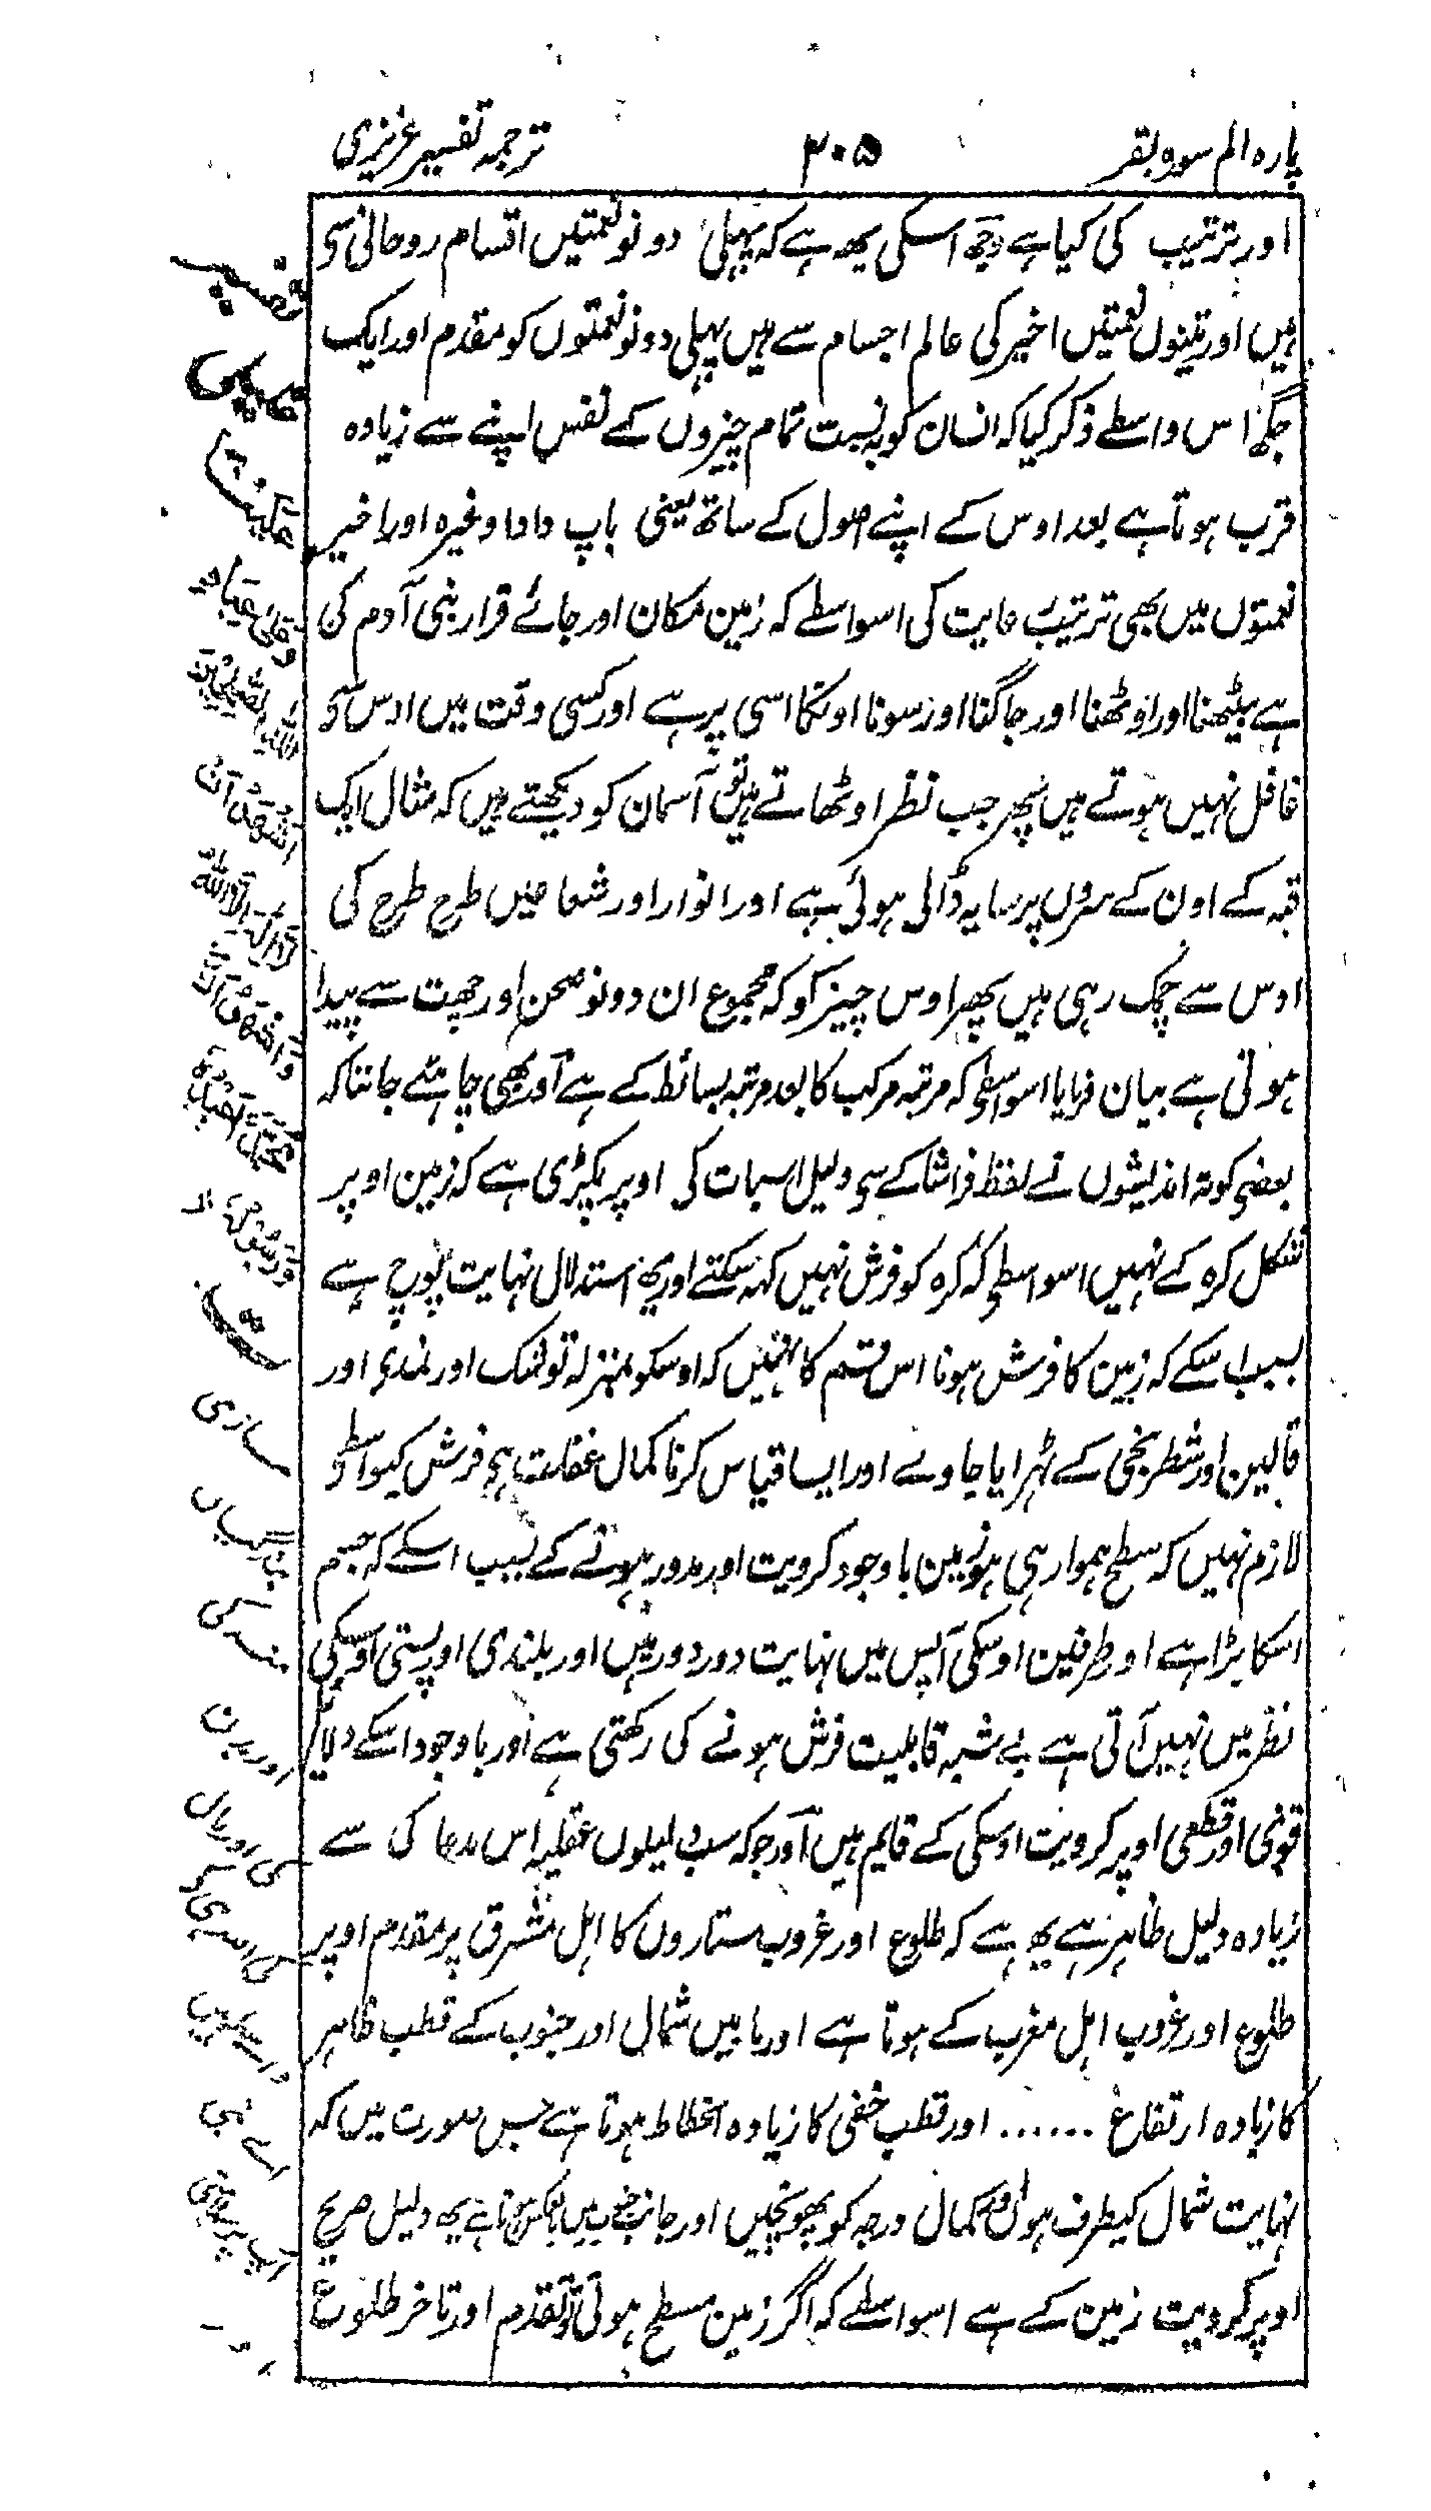 پارہ الم سورہ بقر ۲۰۵ ترجمہ تفسیر عزیزی
اور ترتیب کی کیا ہے وجھ اسکی یھ ہے کہ پہلی دونو نعمتیں اقسام روحانی سی
ہیں اور تینوں نعمتیں اخیر کی عالم اجسام سے ہیں پہلی دونو نعمتوں کو مقدم اور ایک
جگھ اس واسطے ذکر کیا کہ انسان کو بہ نسبت تمام چیزوں کے نفس اپنے سے زیادہ
قرب ہوتا ہے بعد اوس کے اپنے اصول کے ساتھ یعنی باپ دادا وغیرہ اور اخیر
نعمتوں میں بھی ترتیب رعایت کی اسواسطے کہ زمین مکان اور جائے قرار بنی آدم کی
ہے بیٹھنا اور اوٹھنا اور جاگنا اور سونا اونکا اسی پر ہے اور کسی وقت میں اوس سی
غافل نہیں ہوتے ہیں پھر جب نظر اوٹھاتے ہیں تو آسمان کو دیکھتے ہیں کہ مثال ایک
قبہ کے اون کے سروں پر سایہ ڈالی ہوئی ہے اور انوار اور شعاعیں طرح طرح کی
اوس سے چمک رہی ہیں پھر اوس چیز کو کہ مجموع ان دونو صحن اور چھت سے پیدا
ہوتی ہے بیان فرمایا اسواسطی کہ مرتبہ مرکب کا بعد مرتبہ بسائط کے ہے اور بھی چاہئے جاننا کہ
بعضی کوتہ اندیشوں نے لفظ فراشا کے سی دلیل اسبات کی اوپر پکڑی ہے کہ زمین اوپر
شکل کرہ کے نہیں اسواسطی کہ کرہ کو فرش نہیں کہہ سکتے اور یھ استدلال نہایت پوچ ہے
بسبب اسکے کہ زمین کا فرش ہونا اس قسم کا نہیں کہ اوسکو بمنزلہ توشک اور نمدی اور
قالین اور شطرنجی کے ٹہرایا جاوے اور ایسا قیاس کرنا کمال غفلت ہی فرش کیواسطی
لازم نہیں کہ سطح ہموار ہی ہو زمین باوجود کرویت اور مدور ہونے کے بسبب اسکے کہ جسم
اسکا بڑا ہے اور طرفین اوسکی آپس میں نہایت دور دور ہیں اور بلندی اور پستی اوسکی
نظر میں نہیں آتی ہے بے شبہ قابلیت فرش ہونے کی رکھتی ہے اور باوجود اسکے دلایل
قوی اور قطعی اوپر کرویت اوسکی کے قایم ہیں اور جو کہ سب دلیلوں عقلیہ اس مدعا کی سے
زیادہ دلیل ظاہر ہے یھ ہے کہ طلوع اور غروب ستاروں کا اہل مشرق پر مقدم اوپر
طلوع اور غروب اہل مغرب کے ہوتا ہے اور مابین شمال اور جنوب کے قطب ظاہر
کا زیادہ ارتفاع ...... اور قطب خفی کا زیادہ انحطاط ہوتا ہے جس صورت میں کہ
نہایت شمال کیطرف کمال درجہ کو پھونچیں اور جانب جنوب میں بالعکس ہوتا ہے یھ دلیل صریح
اوپر کرویت زمین کے ہے اسواسطے کہ اگر زمین مسطح ہوتی تو تقدم اور تاخر طلوع